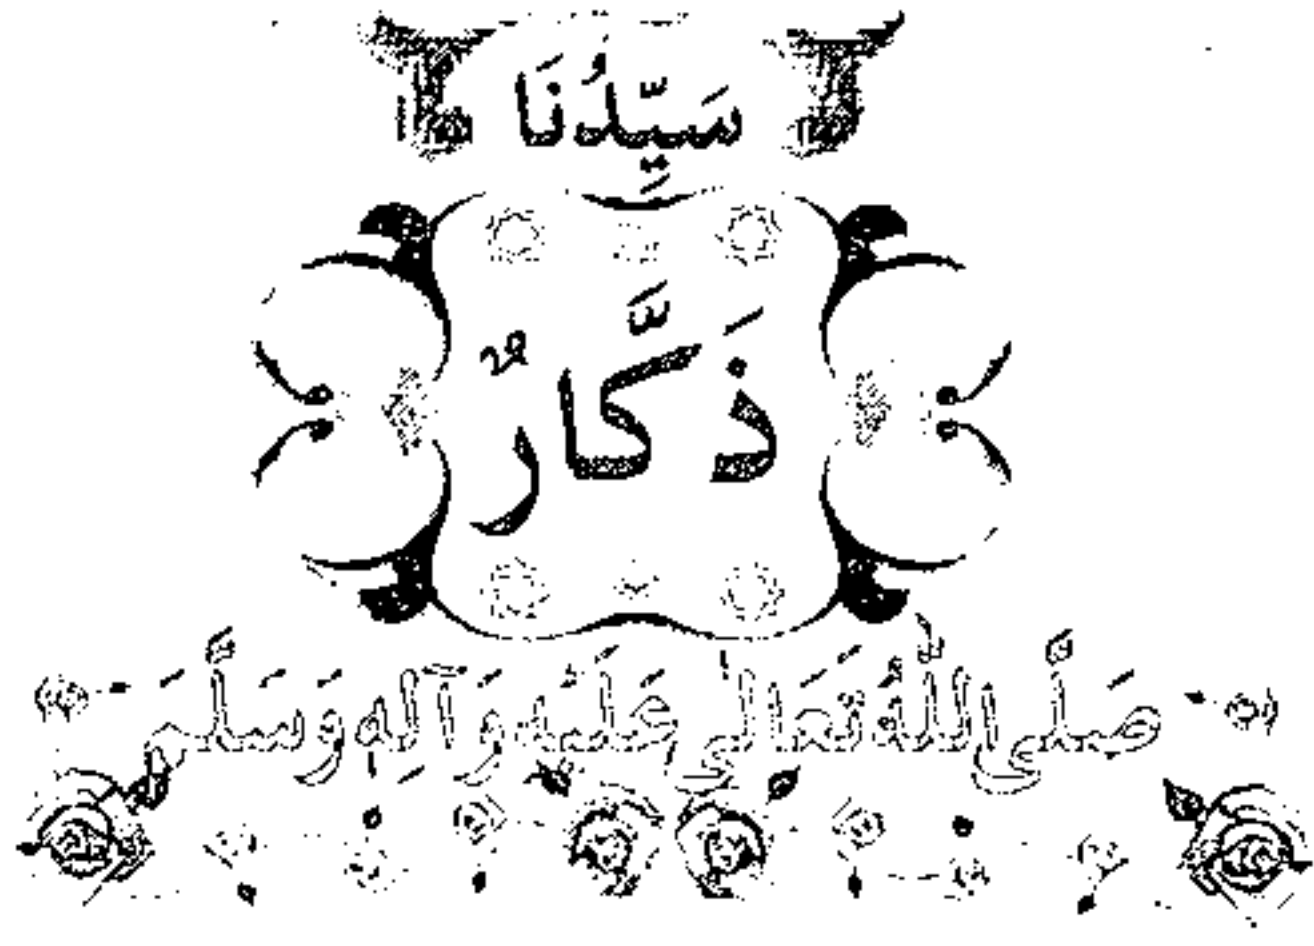 سَيِّدُنَا
ذَكَّارٌ
صَلَّى اللّٰهُ تَعَالٰى عَلَيْهِ وَآلِهِ وَسَلَّمَ